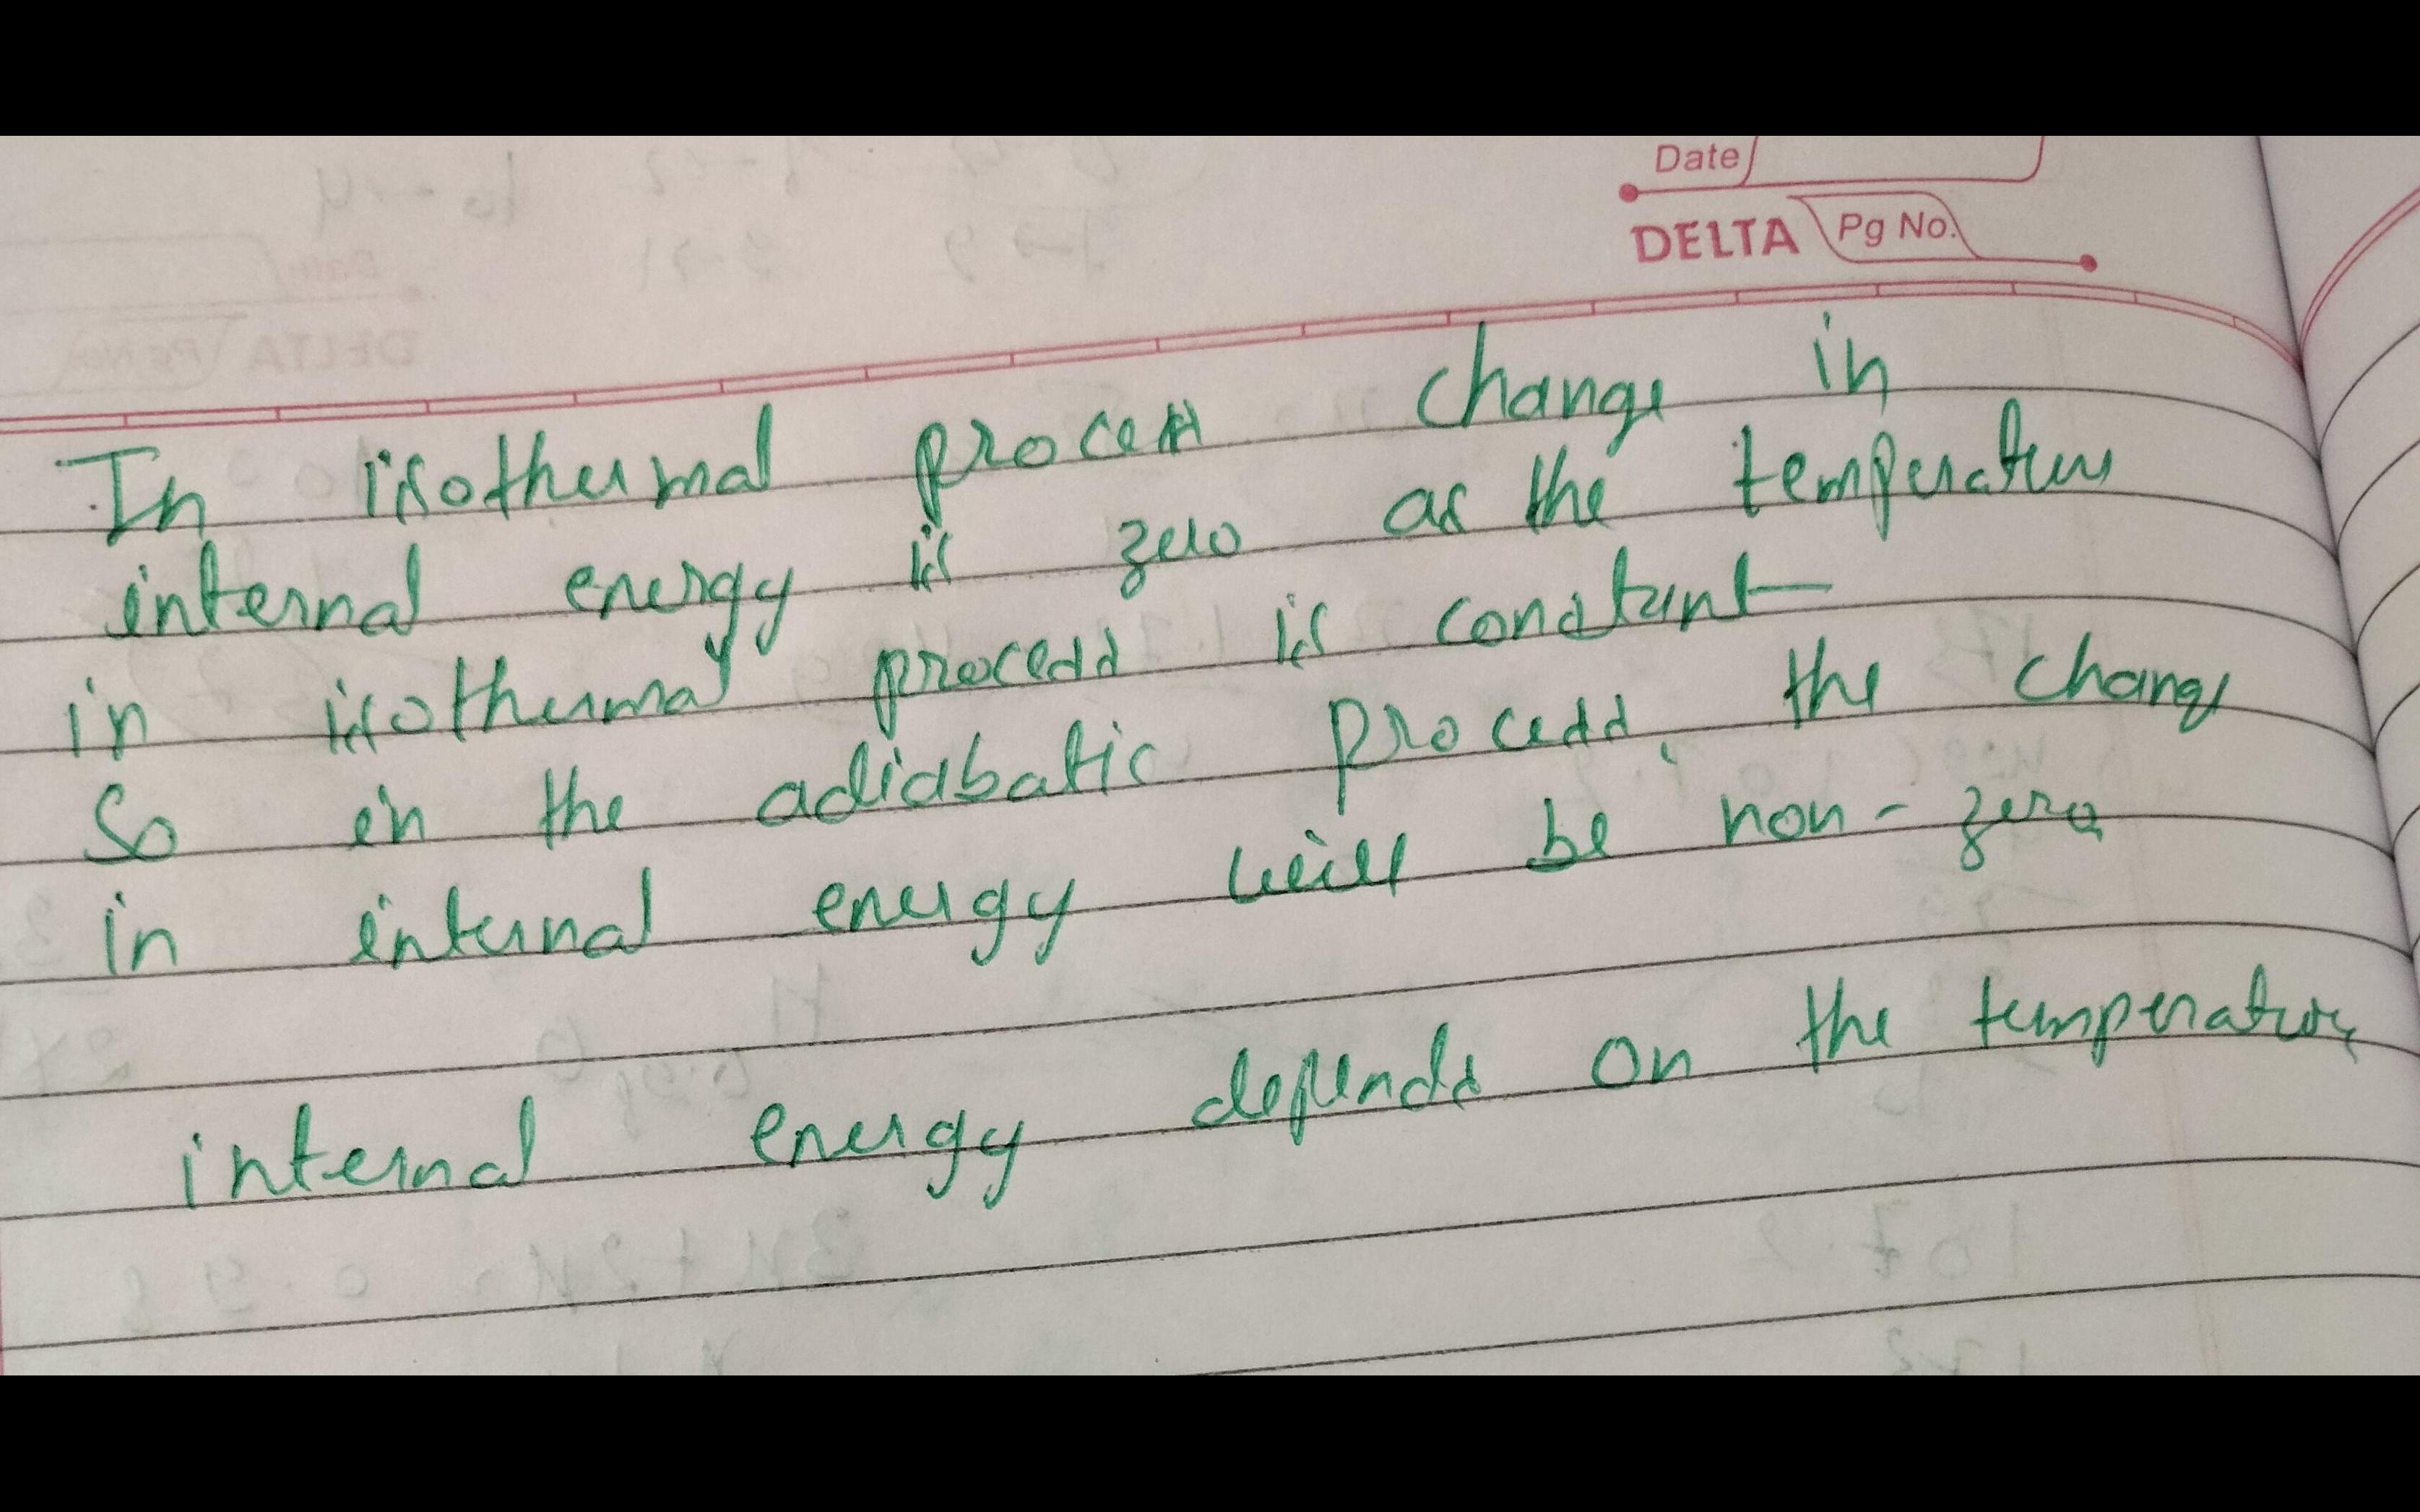 Date
DELTA Pg No.
In isothermal process change in
internal energy is zero as the temperature
in isothermal process is constant
So in the adiabatic process, the change
in internal energy will be non-zero
internal energy depends on the temperature